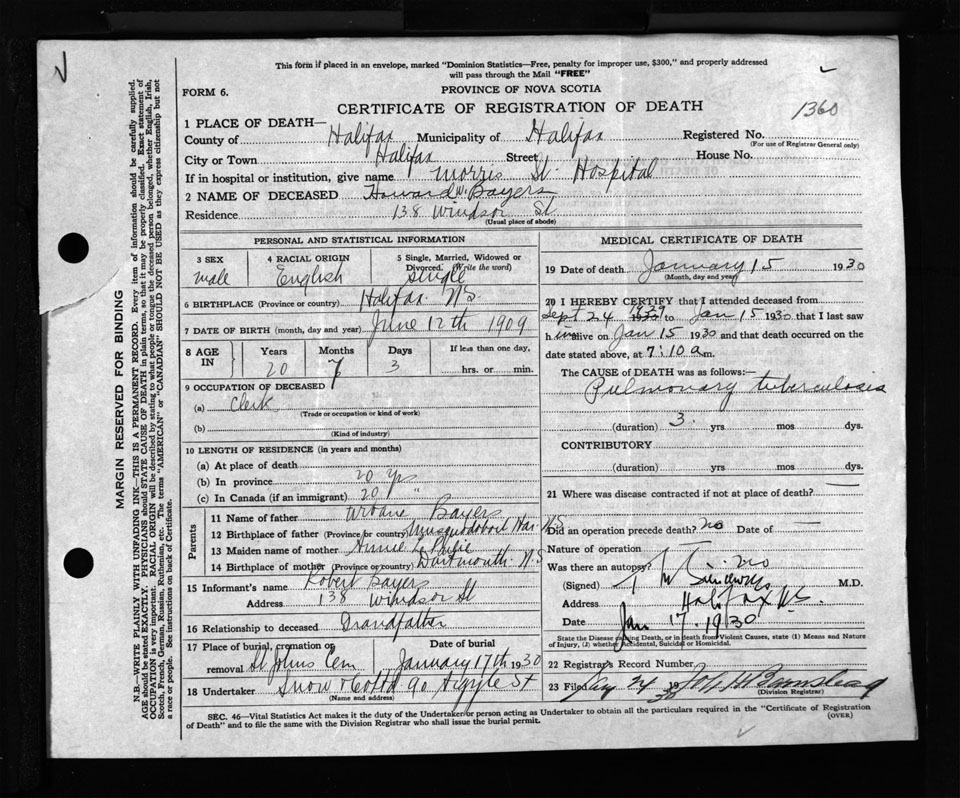 This form if placed in an envelope, marked "Dominion Statistics—Free, penalty for improper use, $300," and properly addressed
will pass through the Mail "FREE"
FORM 6.
PROVINCE OF NOVA SCOTIA
CERTIFICATE OF REGISTRATION OF DEATH
1360
1 PLACE OF DEATH—
County of Halifax Municipality of Halifax Registered No.
(For use of Registrar General only)
City or Town Halifax Street House No.
If in hospital or institution, give name Morris St. Hospital
2 NAME OF DECEASED Howard W. Bayers
Residence 138 Windsor St
(Usual place of abode)
PERSONAL AND STATISTICAL INFORMATION
3 SEX male
4 RACIAL ORIGIN English
5 Single, Married, Widowed or Divorced. (Write the word) Single
6 BIRTHPLACE (Province or country) Halifax N.S.
7 DATE OF BIRTH (month, day and year) June 12th 1909
8 AGE IN Years 20 Months 7 Days 3 If less than one day, hrs. or min.
9 OCCUPATION OF DECEASED
(a) Clerk
(Trade or occupation or kind of work)
(b)
(Kind of industry)
10 LENGTH OF RESIDENCE (in years and months)
(a) At place of death
(b) In province 20 yrs
(c) In Canada (if an immigrant) 20 "
Parents
11 Name of father Bayers
12 Birthplace of father (Province or country) Musquodoboit Har. N.S
13 Maiden name of mother Annie L.
14 Birthplace of mother (Province or country) Dartmouth. N.S
15 Informant's name Robert Bayers
Address 138 Windsor St
16 Relationship to deceased Grandfather
17 Place of burial, cremation or removal St Johns Cem
Date of burial January 17th 1930
18 Undertaker Snow & Co Ltd 90 Argyle St
(Name and address)
MEDICAL CERTIFICATE OF DEATH
19 Date of death January 15 1930
(Month, day and year)
20 I HEREBY CERTIFY that I attended deceased from
Sept 24 1929 to Jan 15 1930 that I last saw
h im alive on Jan 15 1930 and that death occurred on the
date stated above, at 7:10 a.m.
The CAUSE of DEATH was as follows:—
Pulmonary tuberculosis
(duration) 3 yrs mos dys.
CONTRIBUTORY
(duration) yrs mos dys.
21 Where was disease contracted if not at place of death? —
Did an operation precede death? no Date of —
Nature of operation
Was there an autopsy? no
(Signed) M.D.
Address Halifax N.S.
Date Jan 17. 1930
State the Disease causing Death, or in death from Violent Causes, state (1) Means and Nature
of Injury, (2) whether Accidental, Suicidal or Homicidal.
22 Registrar's Record Number
23 Filed 24
(Division Registrar)
SEC. 46—Vital Statistics Act makes it the duty of the Undertaker or person acting as Undertaker to obtain all the particulars required in the "Certificate of Registration
of Death" and to file the same with the Division Registrar who shall issue the burial permit.
(OVER)
MARGIN RESERVED FOR BINDING
N.B.—WRITE PLAINLY WITH UNFADING INK—THIS IS A PERMANENT RECORD. Every item of information should be carefully supplied.
AGE should be stated EXACTLY. PHYSICIANS should STATE CAUSE OF DEATH in plain terms, so that it may be properly classified. Exact statement of
OCCUPATION is very important. RACIAL ORIGIN will be described by stating to what people or tongue the deceased person belonged, whether English, Irish,
Scotch, French, German, Russian, Ruthenian, etc. The terms "AMERICAN" or "CANADIAN" SHOULD NOT BE USED as they express citizenship but not
a race or people. See instructions on back of Certificate.